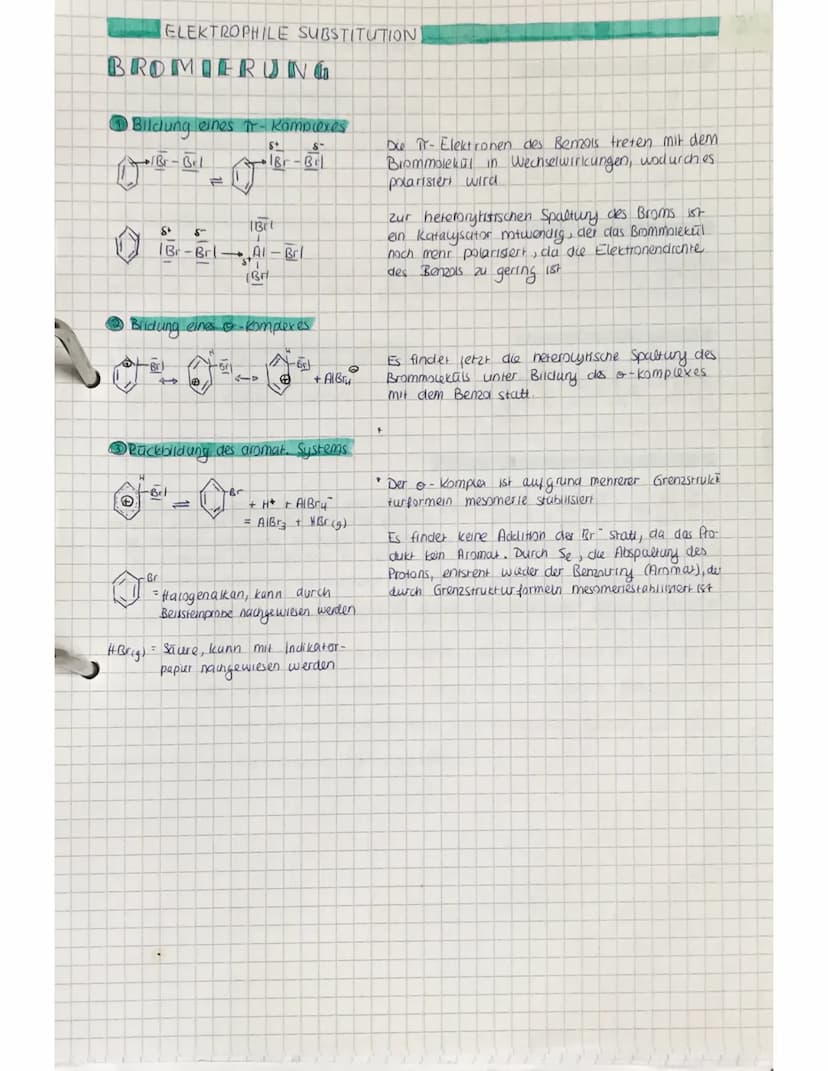 ELEKTROPHILE SUBSTITUTION
BROMIERUNG
① Bildung eines π-Komplexes
Die π-Elektronen des Benzols treten mit dem
Brommolekül in Wechselwirkungen, wodurch es
polarisiert wird
|Br - Br| ⇌ |Br - Br|
δ+ δ-
zur heterolytischen Spaltung des Broms ist
ein Katalysator notwendig, der das Brommolekül
noch mehr polarisiert, da die Elektronendichte
des Benzols zu gering ist
δ+ δ- |Br|
|Br - Br| → Al - Br|
δ+ |Br|
② Bildung eines σ-Komplexes
Es findet jetzt die heterolytische Spaltung des
Brommoleküls unter Bildung des σ-Komplexes
mit dem Benzol statt.
H H
⊕ Br| ↔ ⊕ Br| ↔ ⊕ Br| + AlBr₄⊖
③ Rückbildung des aromat. Systems
* Der σ-Komplex ist aufgrund mehrerer Grenzstruk
turformeln mesomerie stabilisiert
H
⊕ Br| ⇌ Br
+ H+ + AlBr₄⁻
= AlBr₃ + HBr(g)
Es findet keine Addition der Br⁻ statt, da das Pro-
dukt kein Aromat. Durch SE, die Abspaltung des
Protons, entsteht wieder der Benzolring (Aromat), der
durch Grenzstrukturformeln mesomeriestabilisiert ist
Br
= Halogenalkan, kann durch
Beilsteinprobe nachgewiesen werden
HBr(g) = Säure, kann mit Indikator-
papier nachgewiesen werden